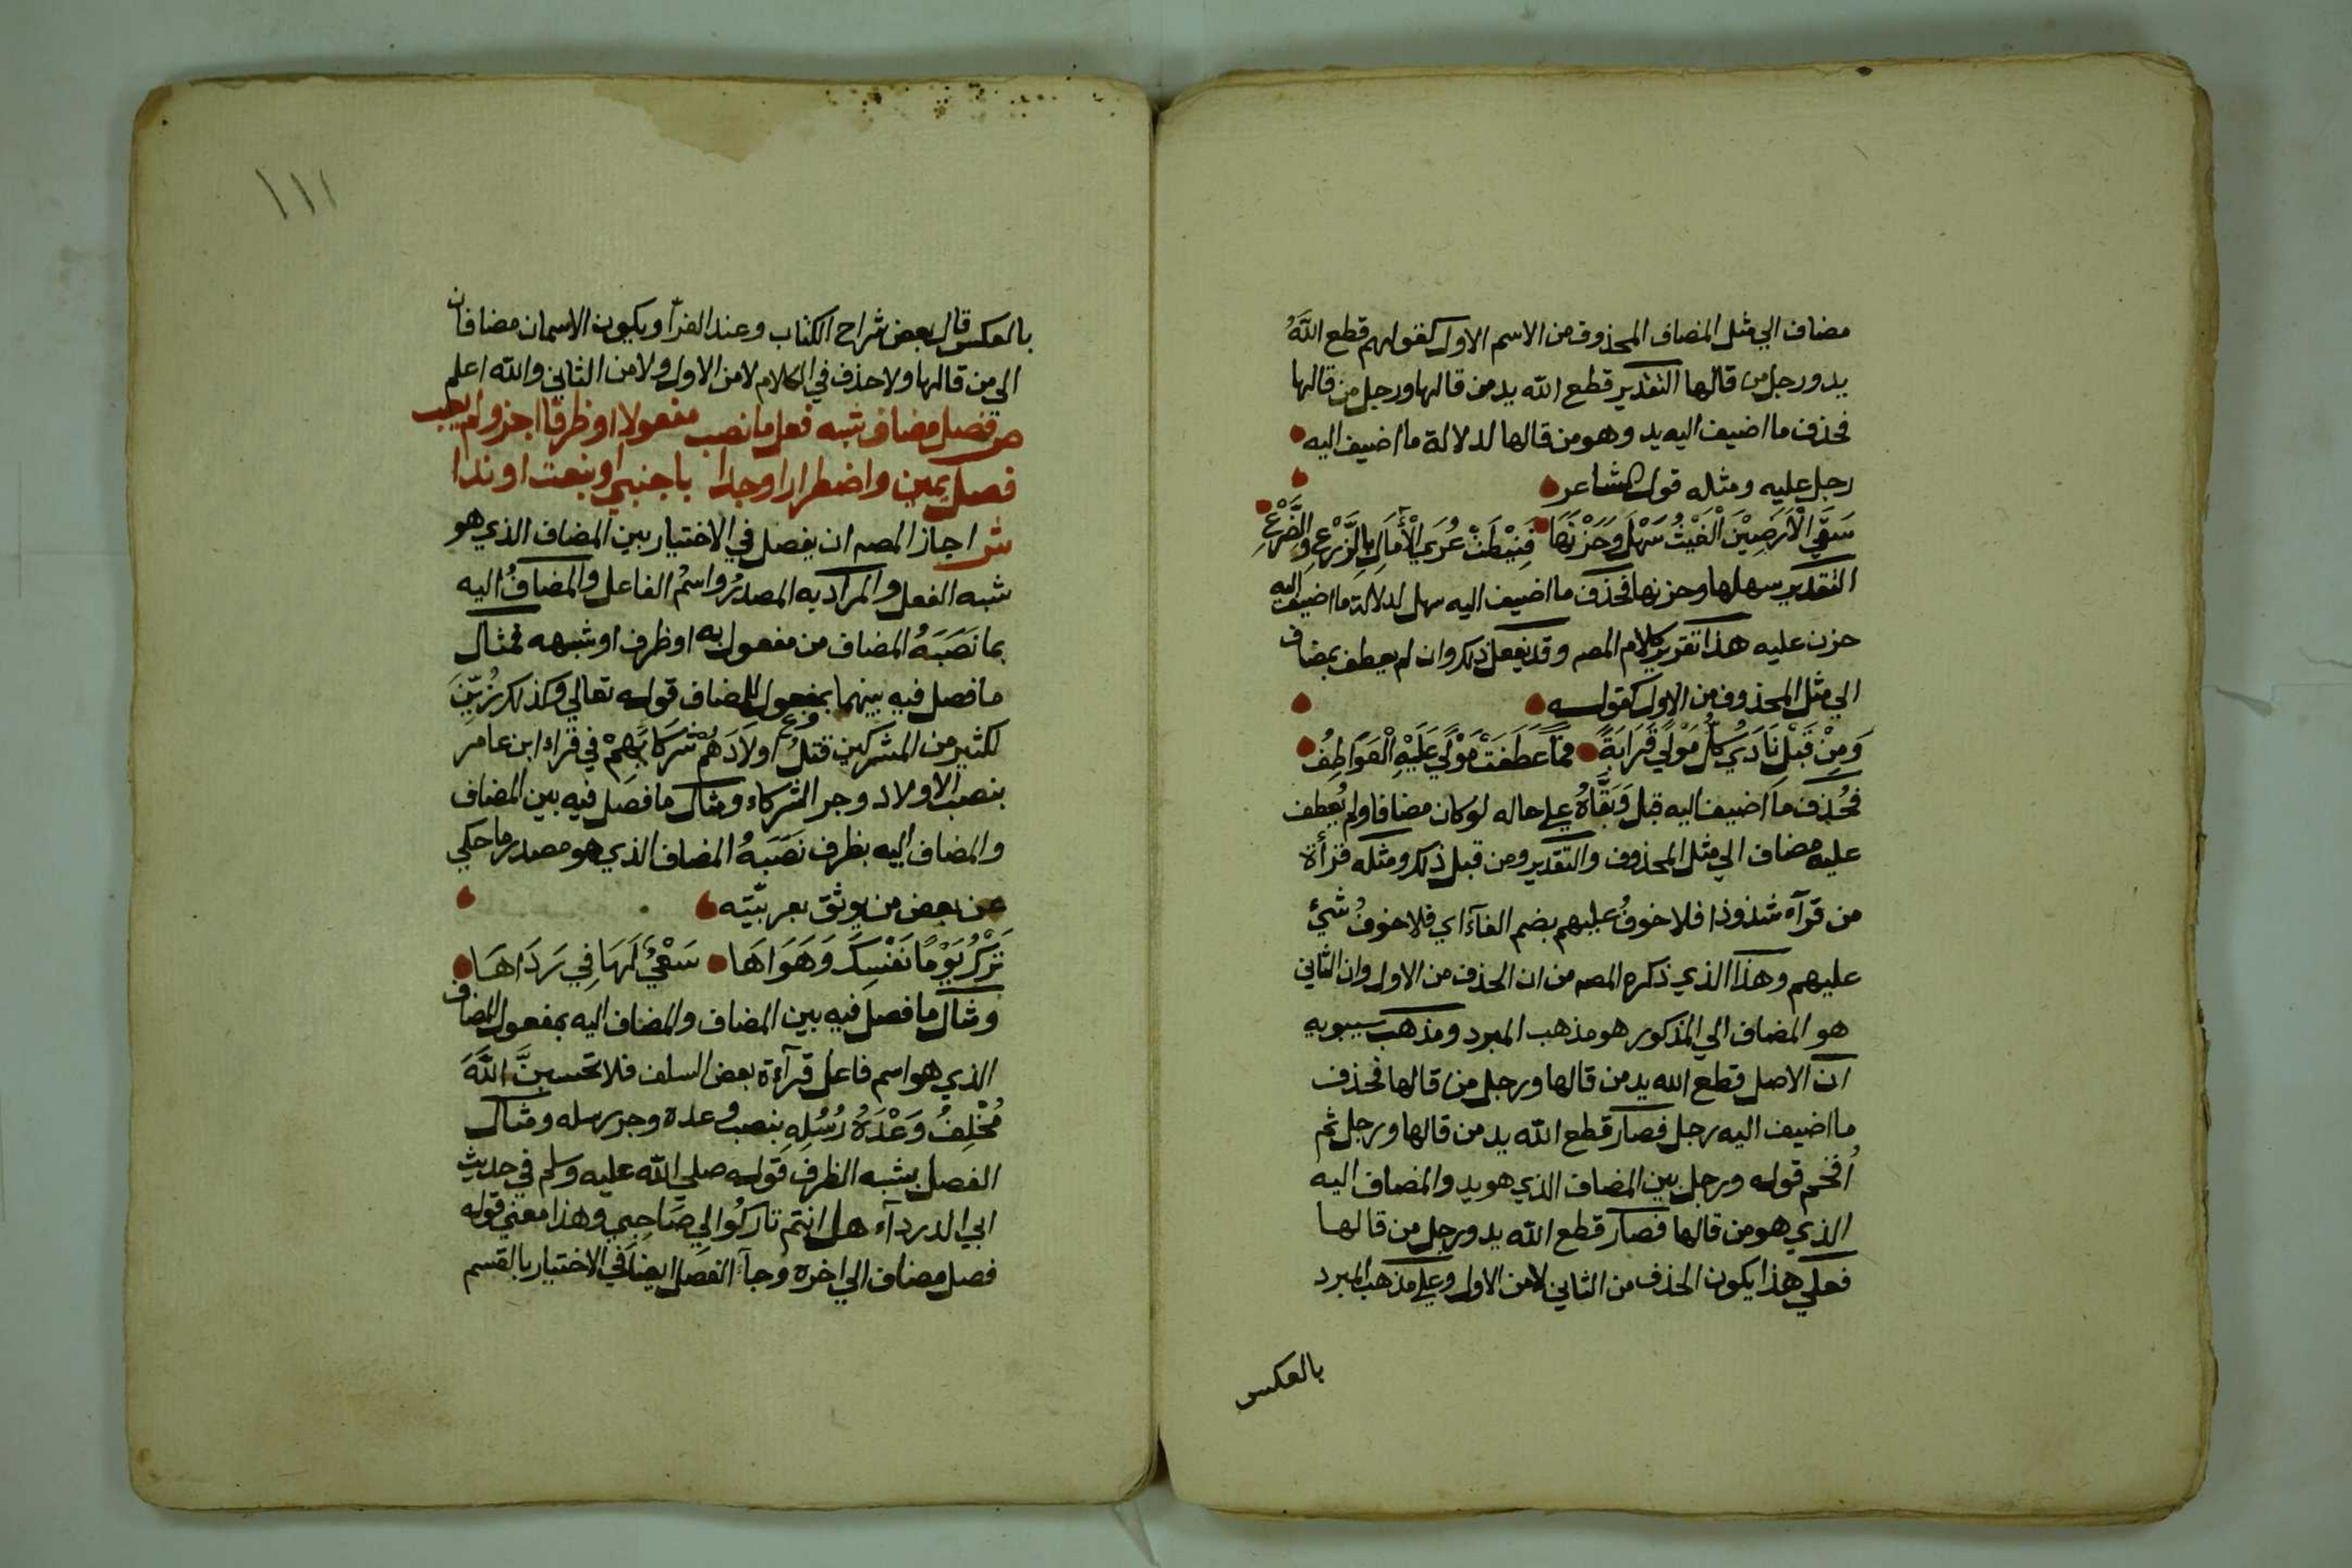 مضاف الي مثل المضاف المحذوف من الاسم الاول كقولهم قطع اللهُ
يد ورجل من قالها التقدير قطع الله يد من قالها ورجل من قالها
فحذف ما اضيف اليه يد وهو من قالها لدلالة ما اضيف اليه
رجل عليه ومثله قول الشاعر
سَقَي الْاَرَضِيْنَ الْغَيْثُ سَهْلَ وَحَزْنَهَا فَنِيْطَتْ عُرَي الْاَمَالِ بِالزَّرْعِ وَالضَّرْعِ
التقدير سهلها وحزنها فحذف ما اضيف اليه سهل لدلالة ما اضيف اليه
حزن عليه هذا تقرير كلام المصه وقد يفعل ذلك وان لم يعطف بمضاف
الي مثل المحذوف من الاول كقوله
وَمِنْ قَبْلِ نَادَي كُلُّ مَوْلًي قَرَابَةً فَمَا عَطَفَتْ مَوْلًي عَلَيْهِ الْعَوَاطِفُ
فحُذِف ما اضيف اليه قبل وَبَقَّاهُ علي حاله لو كان مضافا ولم يُعطف
عليه مضاف الي مثل المحذوف والتقدير ومن قبل ذلك ومثله قرأة
من قرآه شذوذا فلا خوفُ عليهم بضم الفآء اي فلا خوفُ شيْئ
عليهم وهذا الذي ذكره المصه من ان الحذف من الاول وان الثاني
هو المضاف الي المذكور هو مذهب المبرد ومذهب سيبويه
ان الاصل قطع الله يد من قالها ورجل من قالها فحذف
ما اضيف اليه رجل فصار قطع الله يد من قالها ورجل ثم
اُقحم قوله ورجل بين المضاف الذي هو يد والمضاف اليه
الذي هو من قالها فصار قطع الله يد ورجل من قالها
فعلي هذا يكون الحذف من الثاني لا من الاول وعلي مذهب المبرد
بالعكس
١١١
بالعكس قال بعض شراح الكتاب وعند الفرآ ويكون الاسمان مضافان
الي من قالها ولا حذف في الكلام لا من الاول ولا من الثاني والله اعلم
ص فصل مضاف شبه فعل ما نصب مفعولا او ظرفا اجز ولم يعب
فصل يمين واضطرارا وجدا باجنبي او بنعت او ندا
ش اجاز المصه ان يفصل في الاختيار بين المضاف الذي هو
شبه الفعل والمراد به المصدرُ واسمُ الفاعل والمضافُ اليه
بما نَصَبَهُ المضاف من مفعول به او ظرف او شبهه فمثال
ما فصل فيه بينهما بمفعول المضاف قوله تعالي وكذلك زُيِّنَ
لكثير من المشركين قتلُ اولادَهُم شركائِهِمْ في قراءة ابن عامر
بنصب الاولاد وجر الشركاء ومثال ما فصل فيه بين المضاف
والمضاف اليه بظرف نَصَبَهُ المضاف الذي هو مصدر ما حكي
عن بعض من يوثق بعربيّته
تَرْكُ يَوْمًا نَفْسِكَ وَهَوَاهَا سَعْيٌ لَهَا فِي رَدَاهَا
ومثال ما فصل فيه بين المضاف والمضاف اليه بمفعول المضاف
الذي هو اسم فاعل قرآءة بعض السلف فلا تحسبنَّ اللَّهَ
مُخْلِفُ وَعْدَهُ رُسُلِهِ بنصب وعده وجر رسله ومثال
الفصل بشبه الظرف قوله صلي الله عليه وسلم في حديث
ابي الدردآء هل انتم تاركُوا لي صَاحِبِي وهذا معني قوله
فصل مضاف الي اخره وجآء الفصل ايضا في الاختيار بالقسم